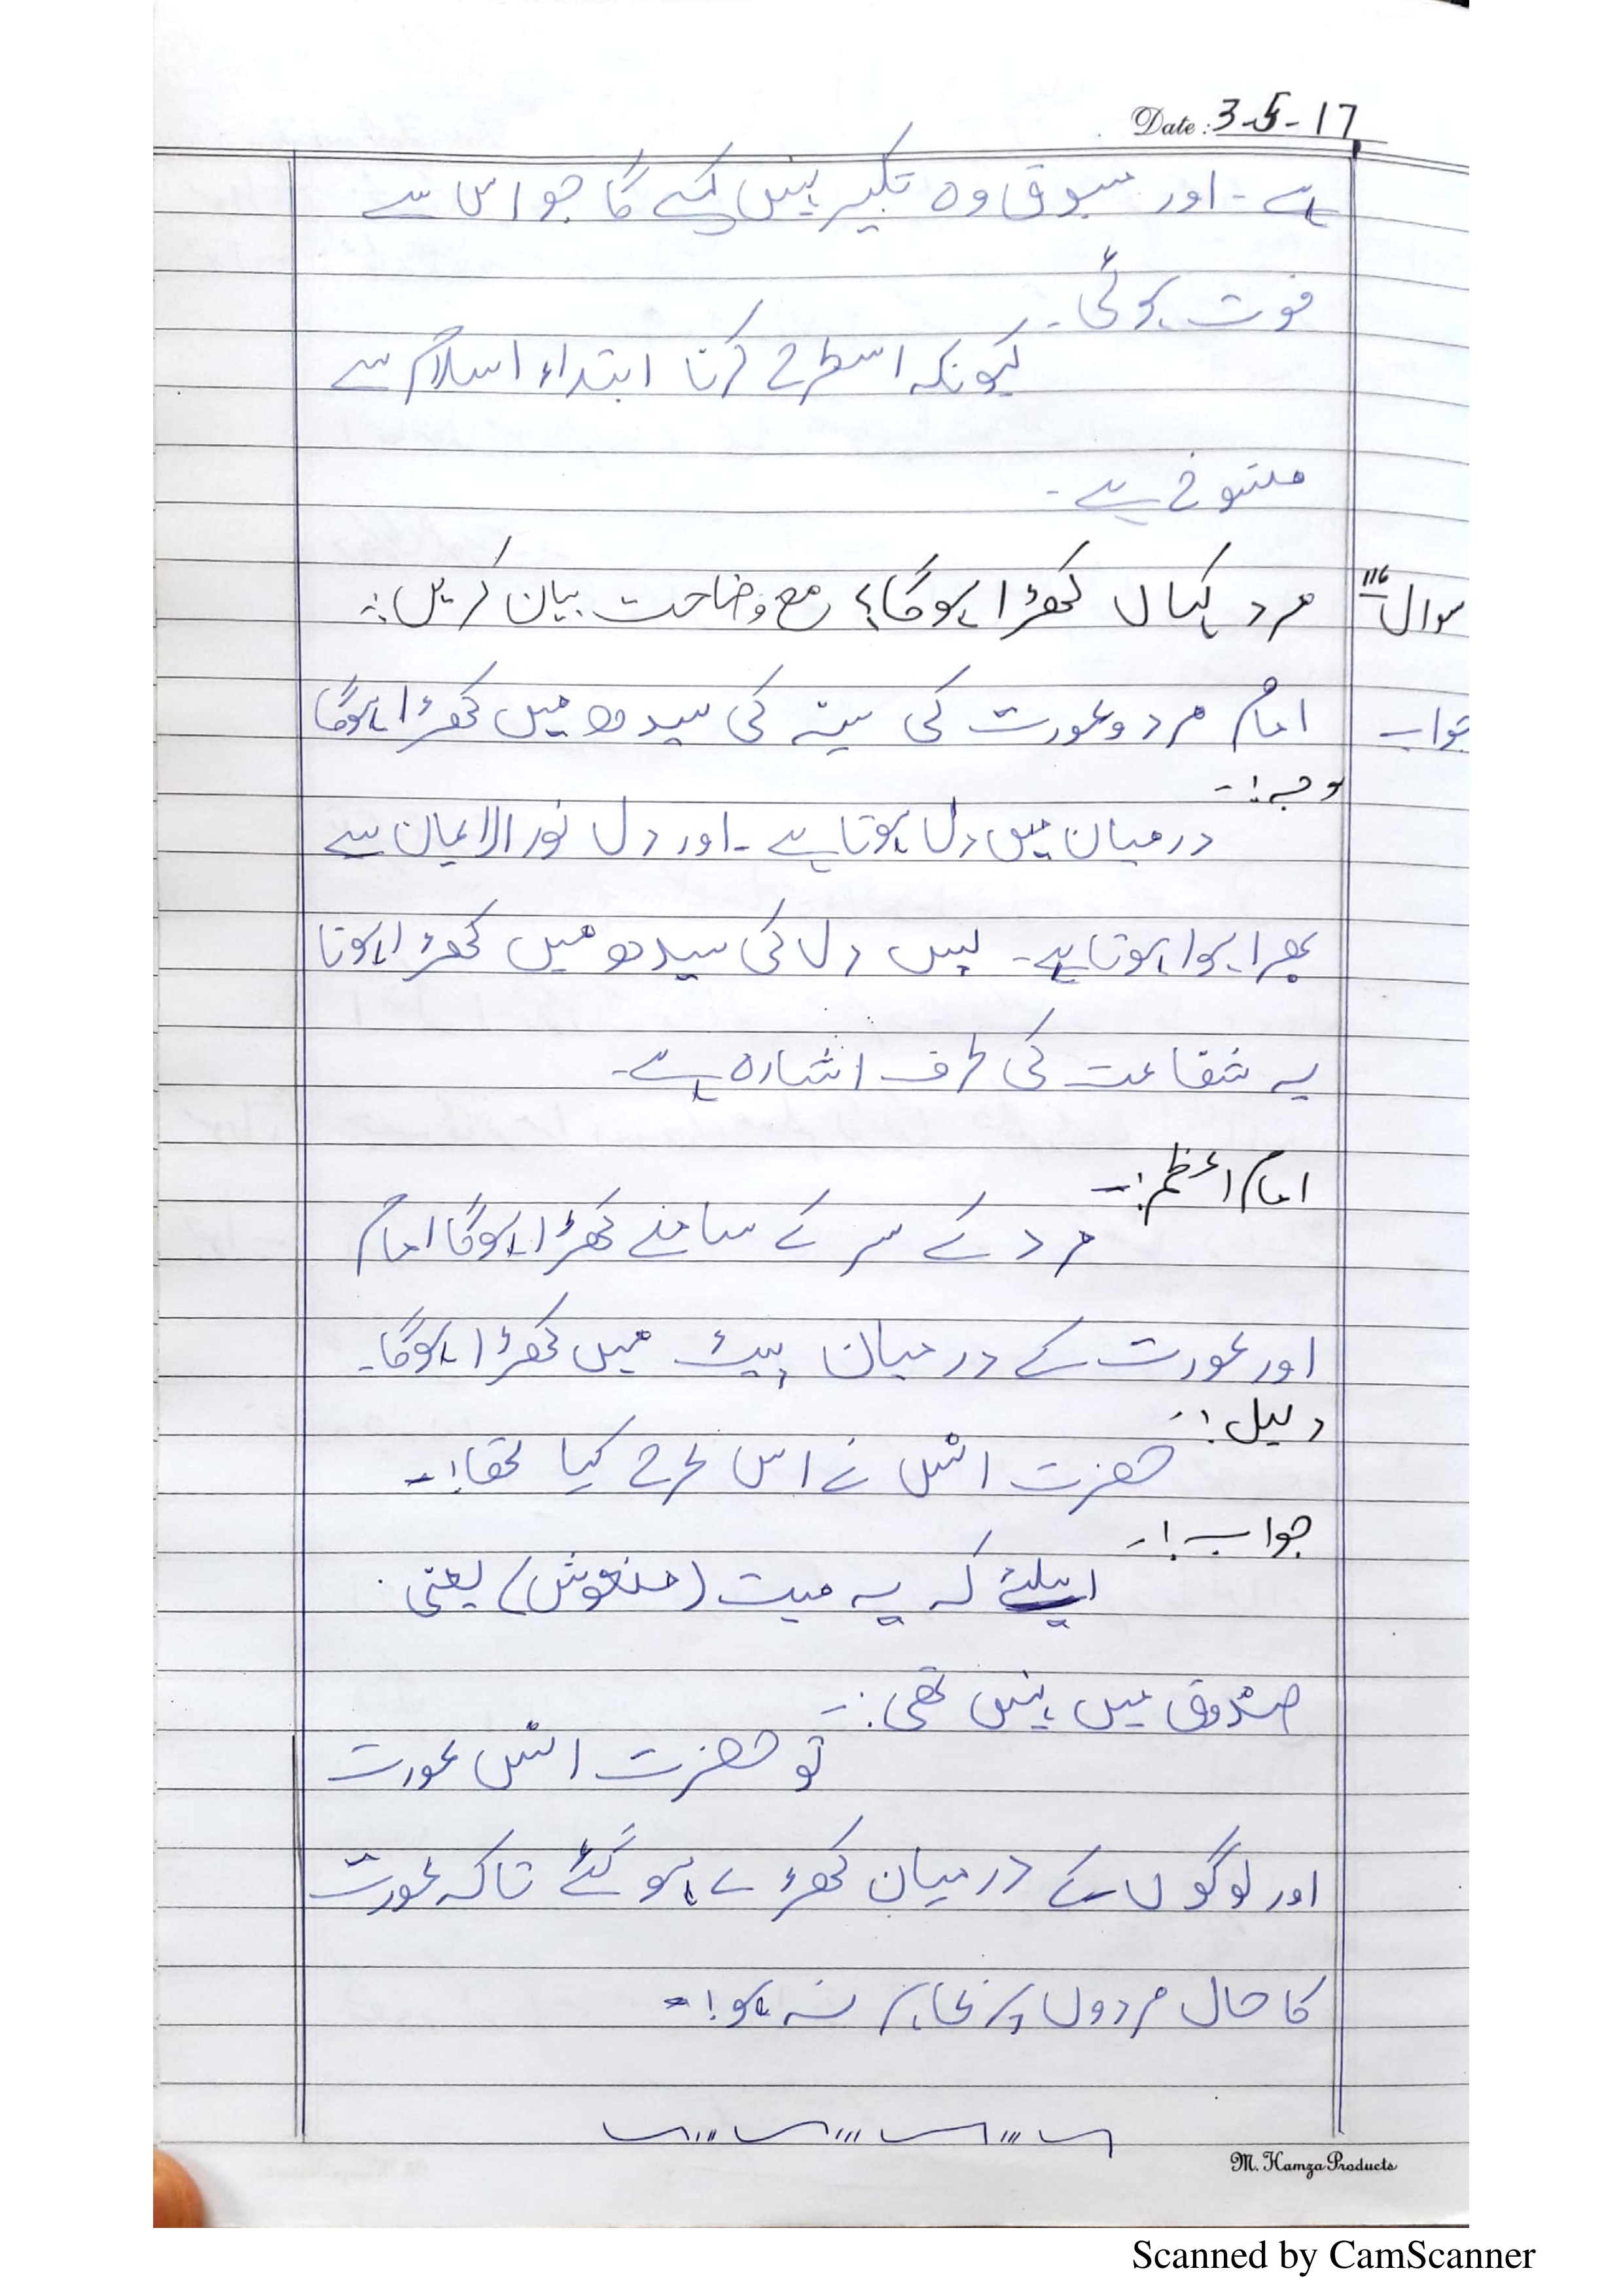 Date: 3-5-17
ہے۔ اور مسبوق وہ تکبیر نہیں کہے گا جو اس سے
فوت ہوگئی۔
کیونکہ اسطرح کرنا ابتداء اسلام سے
منسوخ ہے۔
سوال 116 مرد کہاں کھڑا ہوگا؟ مع وضاحت بیان کریں:۔
جواب امام مرد وعورت کی سینہ کی سیدھ میں کھڑا ہوگا
وجہ:۔
درمیان میں دل ہوتا ہے۔ اور دل نور الایمان سے
بھرا ہوا ہوتا ہے۔ پس دل کی سیدھ میں کھڑا ہونا
یہ شفاعت کی طرف اشارہ ہے۔
امام اعظم:۔
مرد کے سر کے سامنے کھڑا ہوگا امام
اور عورت کے درمیان پیٹ میں کھڑا ہوگا۔
دلیل:۔
حضرت انس نے اس طرح کیا تھا:۔
جواب:۔
اسلئے کہ یہ میت (منعوش) یعنی
صندوق میں نہیں تھی:۔
تو حضرت انس عورت
اور لوگوں کے درمیان کھڑے ہو گئے تاکہ عورت
کا حال مردوں پر ظاہر نہ ہو:۔
M. Hamza Products
Scanned by CamScanner